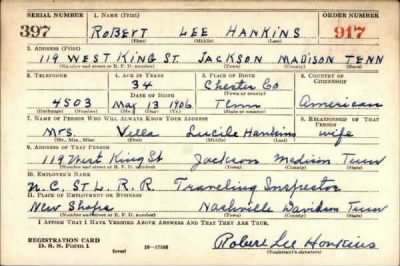 SERIAL NUMBER 1. NAME (Print) ORDER NUMBER
397 ROBERT LEE HANKINS 917
(First) (Middle) (Last)
2. ADDRESS (Print)
119 WEST KING ST. JACKSON MADISON TENN
(Number and street or R. F. D. number) (Town) (County) (State)
3. TELEPHONE 4. AGE IN YEARS 5. PLACE OF BIRTH 6. COUNTRY OF CITIZENSHIP
34 Chester Co.
DATE OF BIRTH (Town or county)
4503 May 13 1906 Tenn American
(Exchange) (Number) (Mo.) (Day) (Yr.) (State or country)
7. NAME OF PERSON WHO WILL ALWAYS KNOW YOUR ADDRESS 8. RELATIONSHIP OF THAT PERSON
Mrs. Vella Lucile Hankins wife
(Mr., Mrs., Miss) (First) (Middle) (Last)
9. ADDRESS OF THAT PERSON
119 West King St Jackson Madison Tenn
(Number and street or R. F. D. number) (Town) (County) (State)
10. EMPLOYER'S NAME
N.C. ST L. R.R. Traveling Inspector
11. PLACE OF EMPLOYMENT OR BUSINESS
New Shops Nashville Davidson Tenn
(Number and street or R. F. D. number) (Town) (County) (State)
I AFFIRM THAT I HAVE VERIFIED ABOVE ANSWERS AND THAT THEY ARE TRUE.
REGISTRATION CARD
D. S. S. Form 1 (over) 16—17105 Robert Lee Hankins
(Registrant's signature)